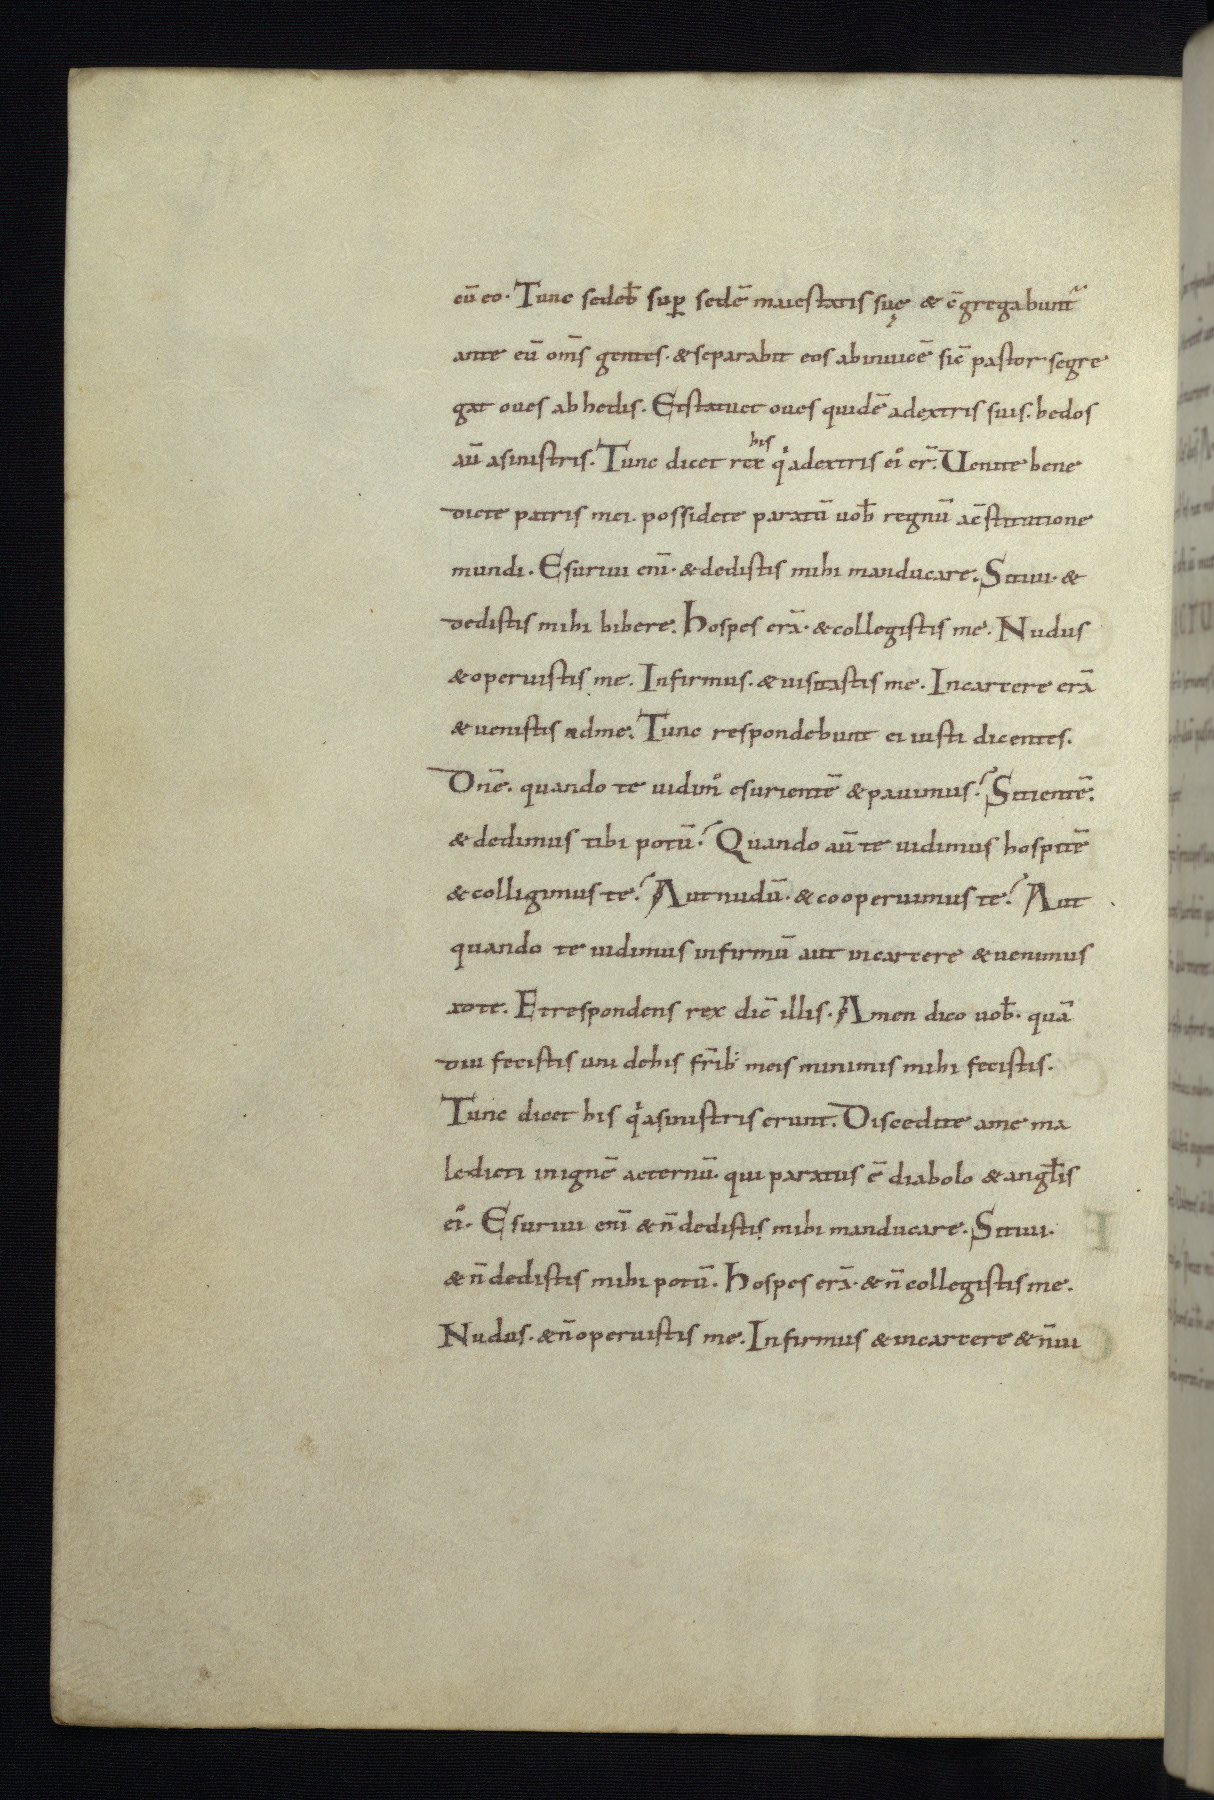 cū eo. Tunc sedeb̄ suꝑ sedē maiestatis suę & c̄gregabunt᷑
ante eū om̄s gentes. & separabit eos abinuicē sic̄ pastor segre
gat oues ab hedis. Et statuet oues quidē adextris suis. hedos
aū asinistris. Tunc dicet rex his qͥ adextris eiꝰ er̄. Uenite bene
dicte patris mei. possidete paratū uob̄ regnū ac̄stitutione
mundi. Esuriui enī. & dedistis mihi manducare. Sitiui. &
dedistis mihi bibere. hospes erā. & collegistis me. Nudus
& operuistis me. Infirmus. & uisitastis me. Incarcere erā
& uenistis adme. Tunc respondebunt ei iusti dicentes.
Dn̄e. quando te uidimꝰ esurientē & pauimus? Sitientē.
& dedimus tibi potū? Quando aū te uidimus hospitē
& colligimus te? Aut nudū. & cooperuimus te? Aut
quando te uidimus infirmū aut incarcere & uenimus
adte. Et respondens rex dic̄ illis. Amen dico uob̄. quā
diu fecistis uni dehis fr̄ib; meis minimis mihi fecistis.
Tunc dicet his qͥ asinistris erunt. Discedite ame ma
ledicti inignē aeternū. qui paratus ē diabolo & angl̄is
eiꝰ. Esuriui enī & n̄ dedistis mihi manducare. Sitiui.
& n̄ dedistis mihi potū. hospes erā. & n̄ collegistis me.
Nudus. & n̄ operuistis me. Infirmus & incarcere & n̄ ui